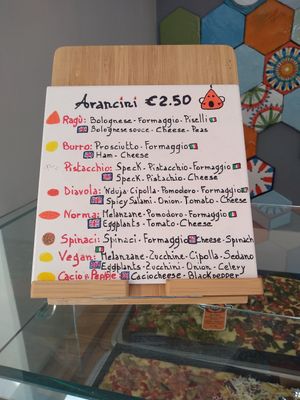 Arancini €2.50
Ragù: Bolognese-Formaggio-Piselli
Bolognese souce-Cheese-Peas
Burro: Prosciutto-Formaggio
Ham-Cheese
Pistacchio: Speck-Pistacchio-Formaggio
Speck-Pistachio-Cheese
Diavola: 'Nduja-Cipolla-Pomodoro-Formaggio
Spicy Salami-Onion-Tomato-Cheese
Norma: Melanzane-Pomodoro-Formaggio
Eggplants-Tomato-Cheese
Spinaci: Spinaci-Formaggio Cheese-Spinach
Vegan: Melanzane-Zucchine-Cipolla-Sedano
Eggplants-Zucchini-Onion-Celery
Cacio e Pepe: Caciocheese-Blackpepper